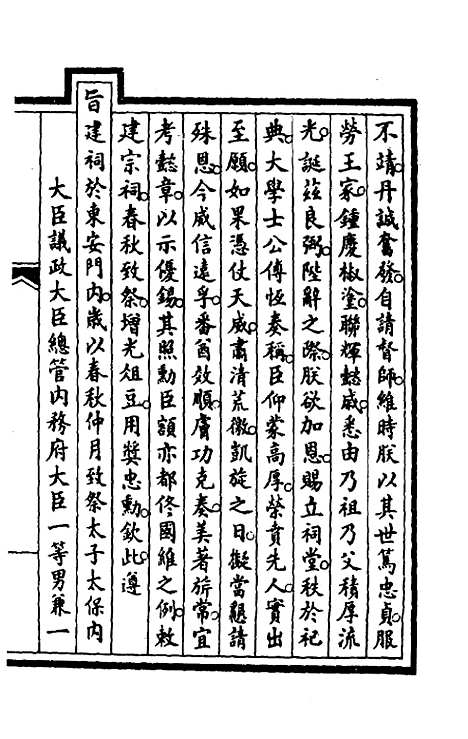 不靖丹誠奮發。自請督師。維時朕以其世篤忠貞。服
勞王家。鍾慶椒塗。聯輝懿戚。悉由乃祖乃父積厚流
光。誕茲良弼。陛辭之際。朕欲加恩。賜立祠堂。秩於祀
典。大學士公傅恆奏稱。臣仰蒙高厚。榮賁先人。實出
至願。如果憑仗天威。肅清荒徼。凱旋之日。擬當懇請
殊恩。今威信遠孚。番酋效順。膚功克奏。美著旂常。宜
考懿章。以示優錫。其照勳臣額亦都佟國維之例。敕
建宗祠。春秋致祭。增光俎豆。用獎忠勳。欽此。遵
旨建祠於東安門內。歲以春秋仲月致祭太子太保內
大臣議政大臣總管內務府大臣一等男兼一